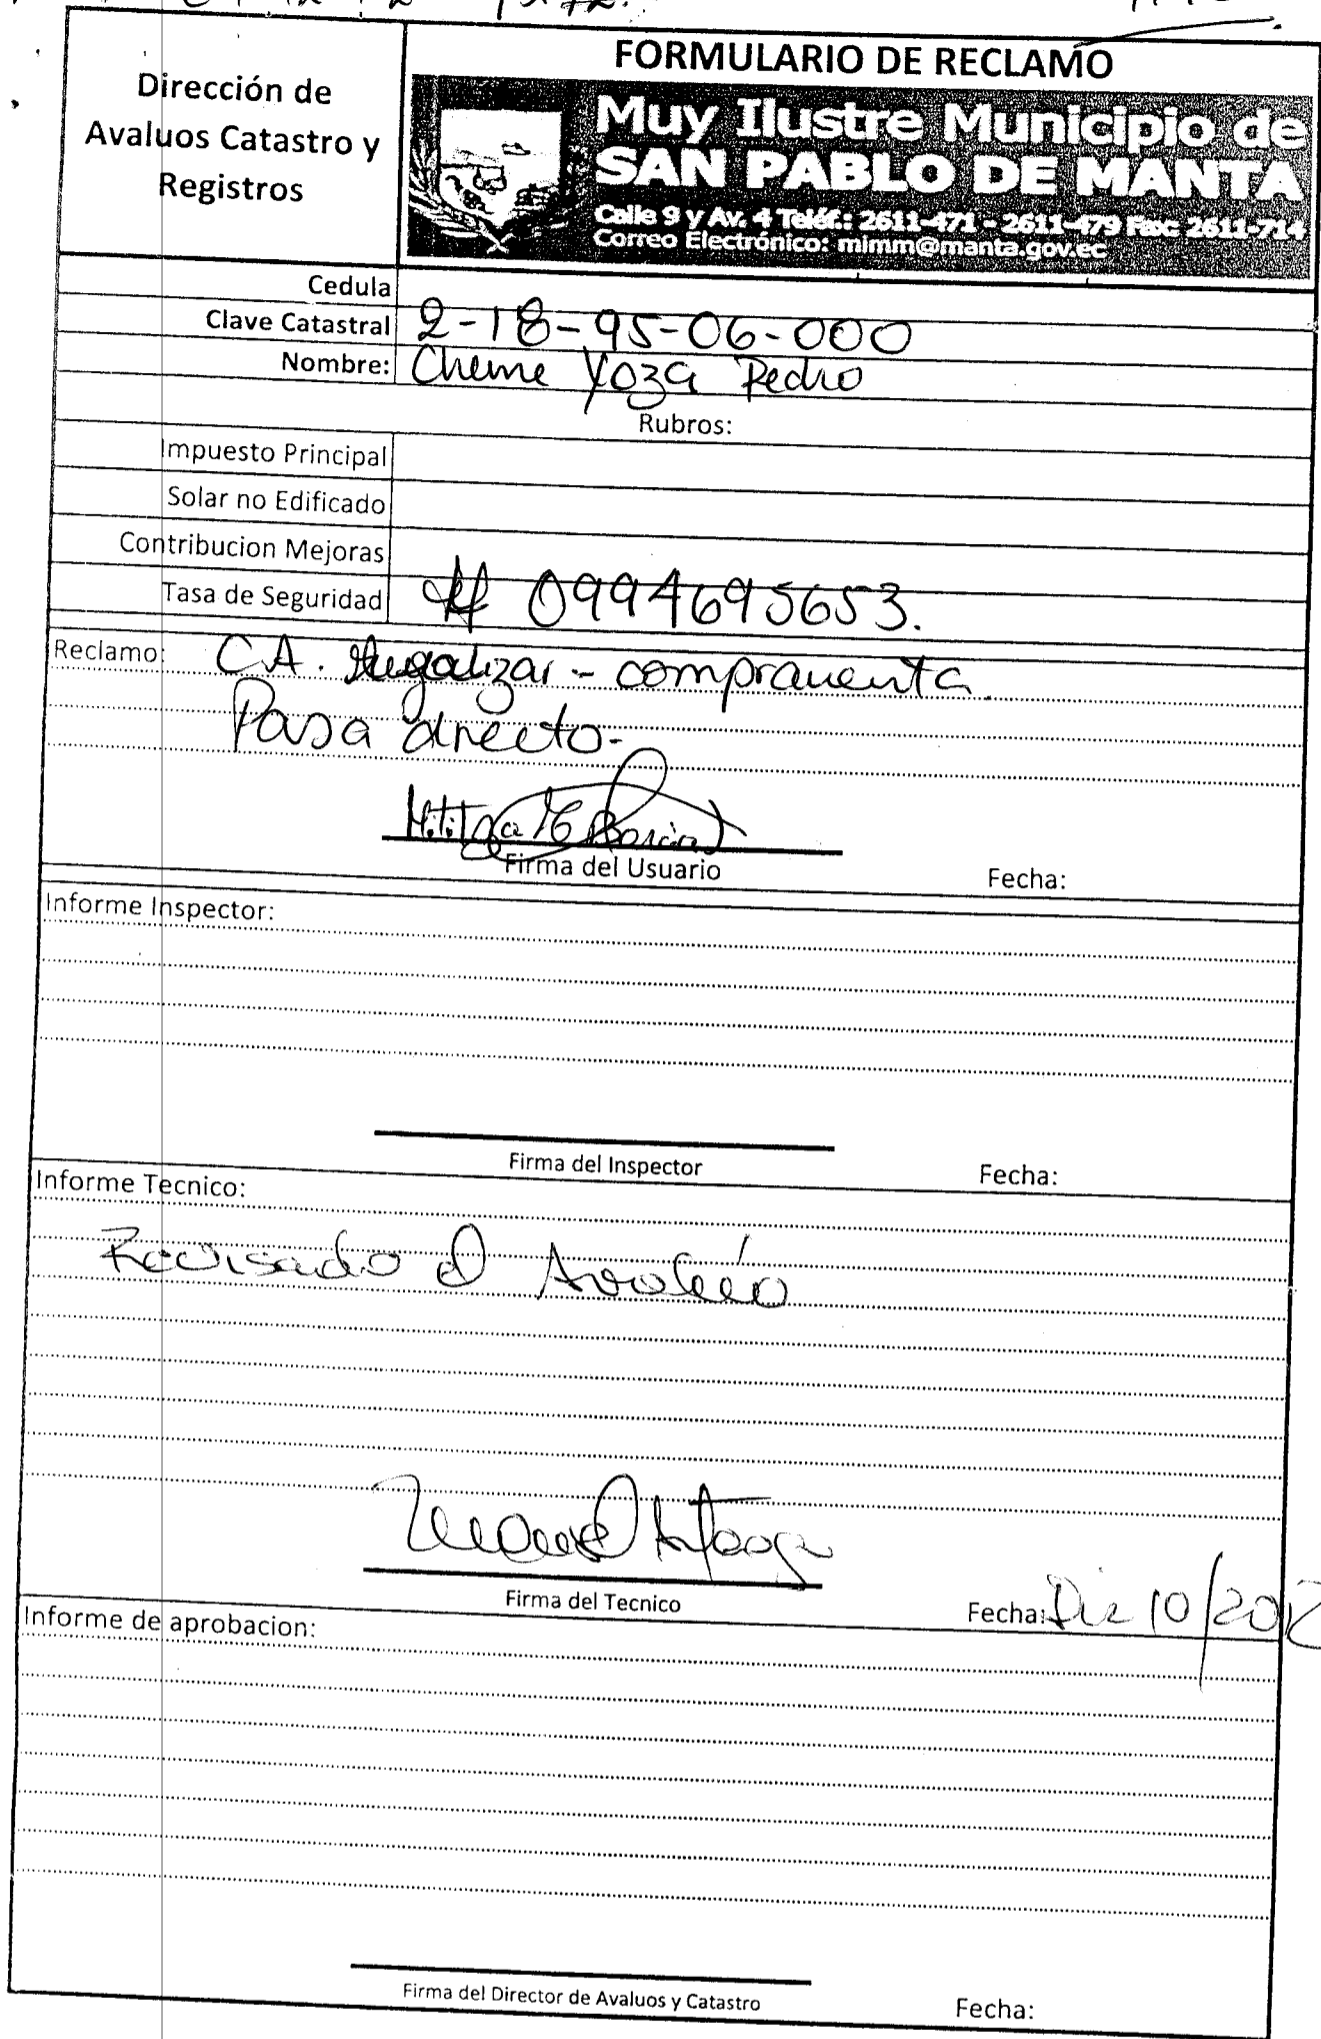 FORMULARIO DE RECLAMO
Dirección de
Avaluos Catastro y
Registros
Muy Ilustre Municipio de
SAN PABLO DE MANTA
Calle 9 y Av. 4 Teléf.: 2611-471 - 2611-479 Fax: 2611-714
Correo Electrónico: mimm@manta.gov.ec
Cedula
Clave Catastral 2-18-95-06-000
Nombre: Cheme Yoza Pedro
Rubros:
Impuesto Principal
Solar no Edificado
Contribucion Mejoras
Tasa de Seguridad 0994695653.
Reclamo: C.A. - compraventa.
Pasa directo-
Firma del Usuario Fecha:
Informe Inspector:
Firma del Inspector Fecha:
Informe Tecnico:
Revisado Avalúo
Firma del Tecnico Fecha: Dic 10/2012
Informe de aprobacion:
Firma del Director de Avaluos y Catastro Fecha: